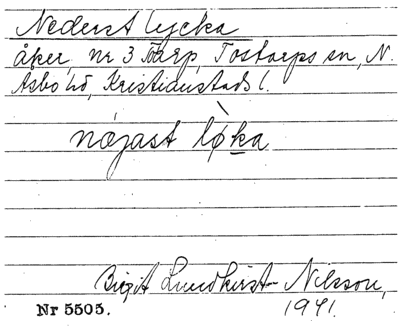 Nederst lycka
åker, nr 3 Tarp, Tostarps sn, N.
Asbo hd, Kristianstads l.
nǫjast lø̀ka
Birgit Lundkvist-Nilsson,
Nr 5505. 1941.